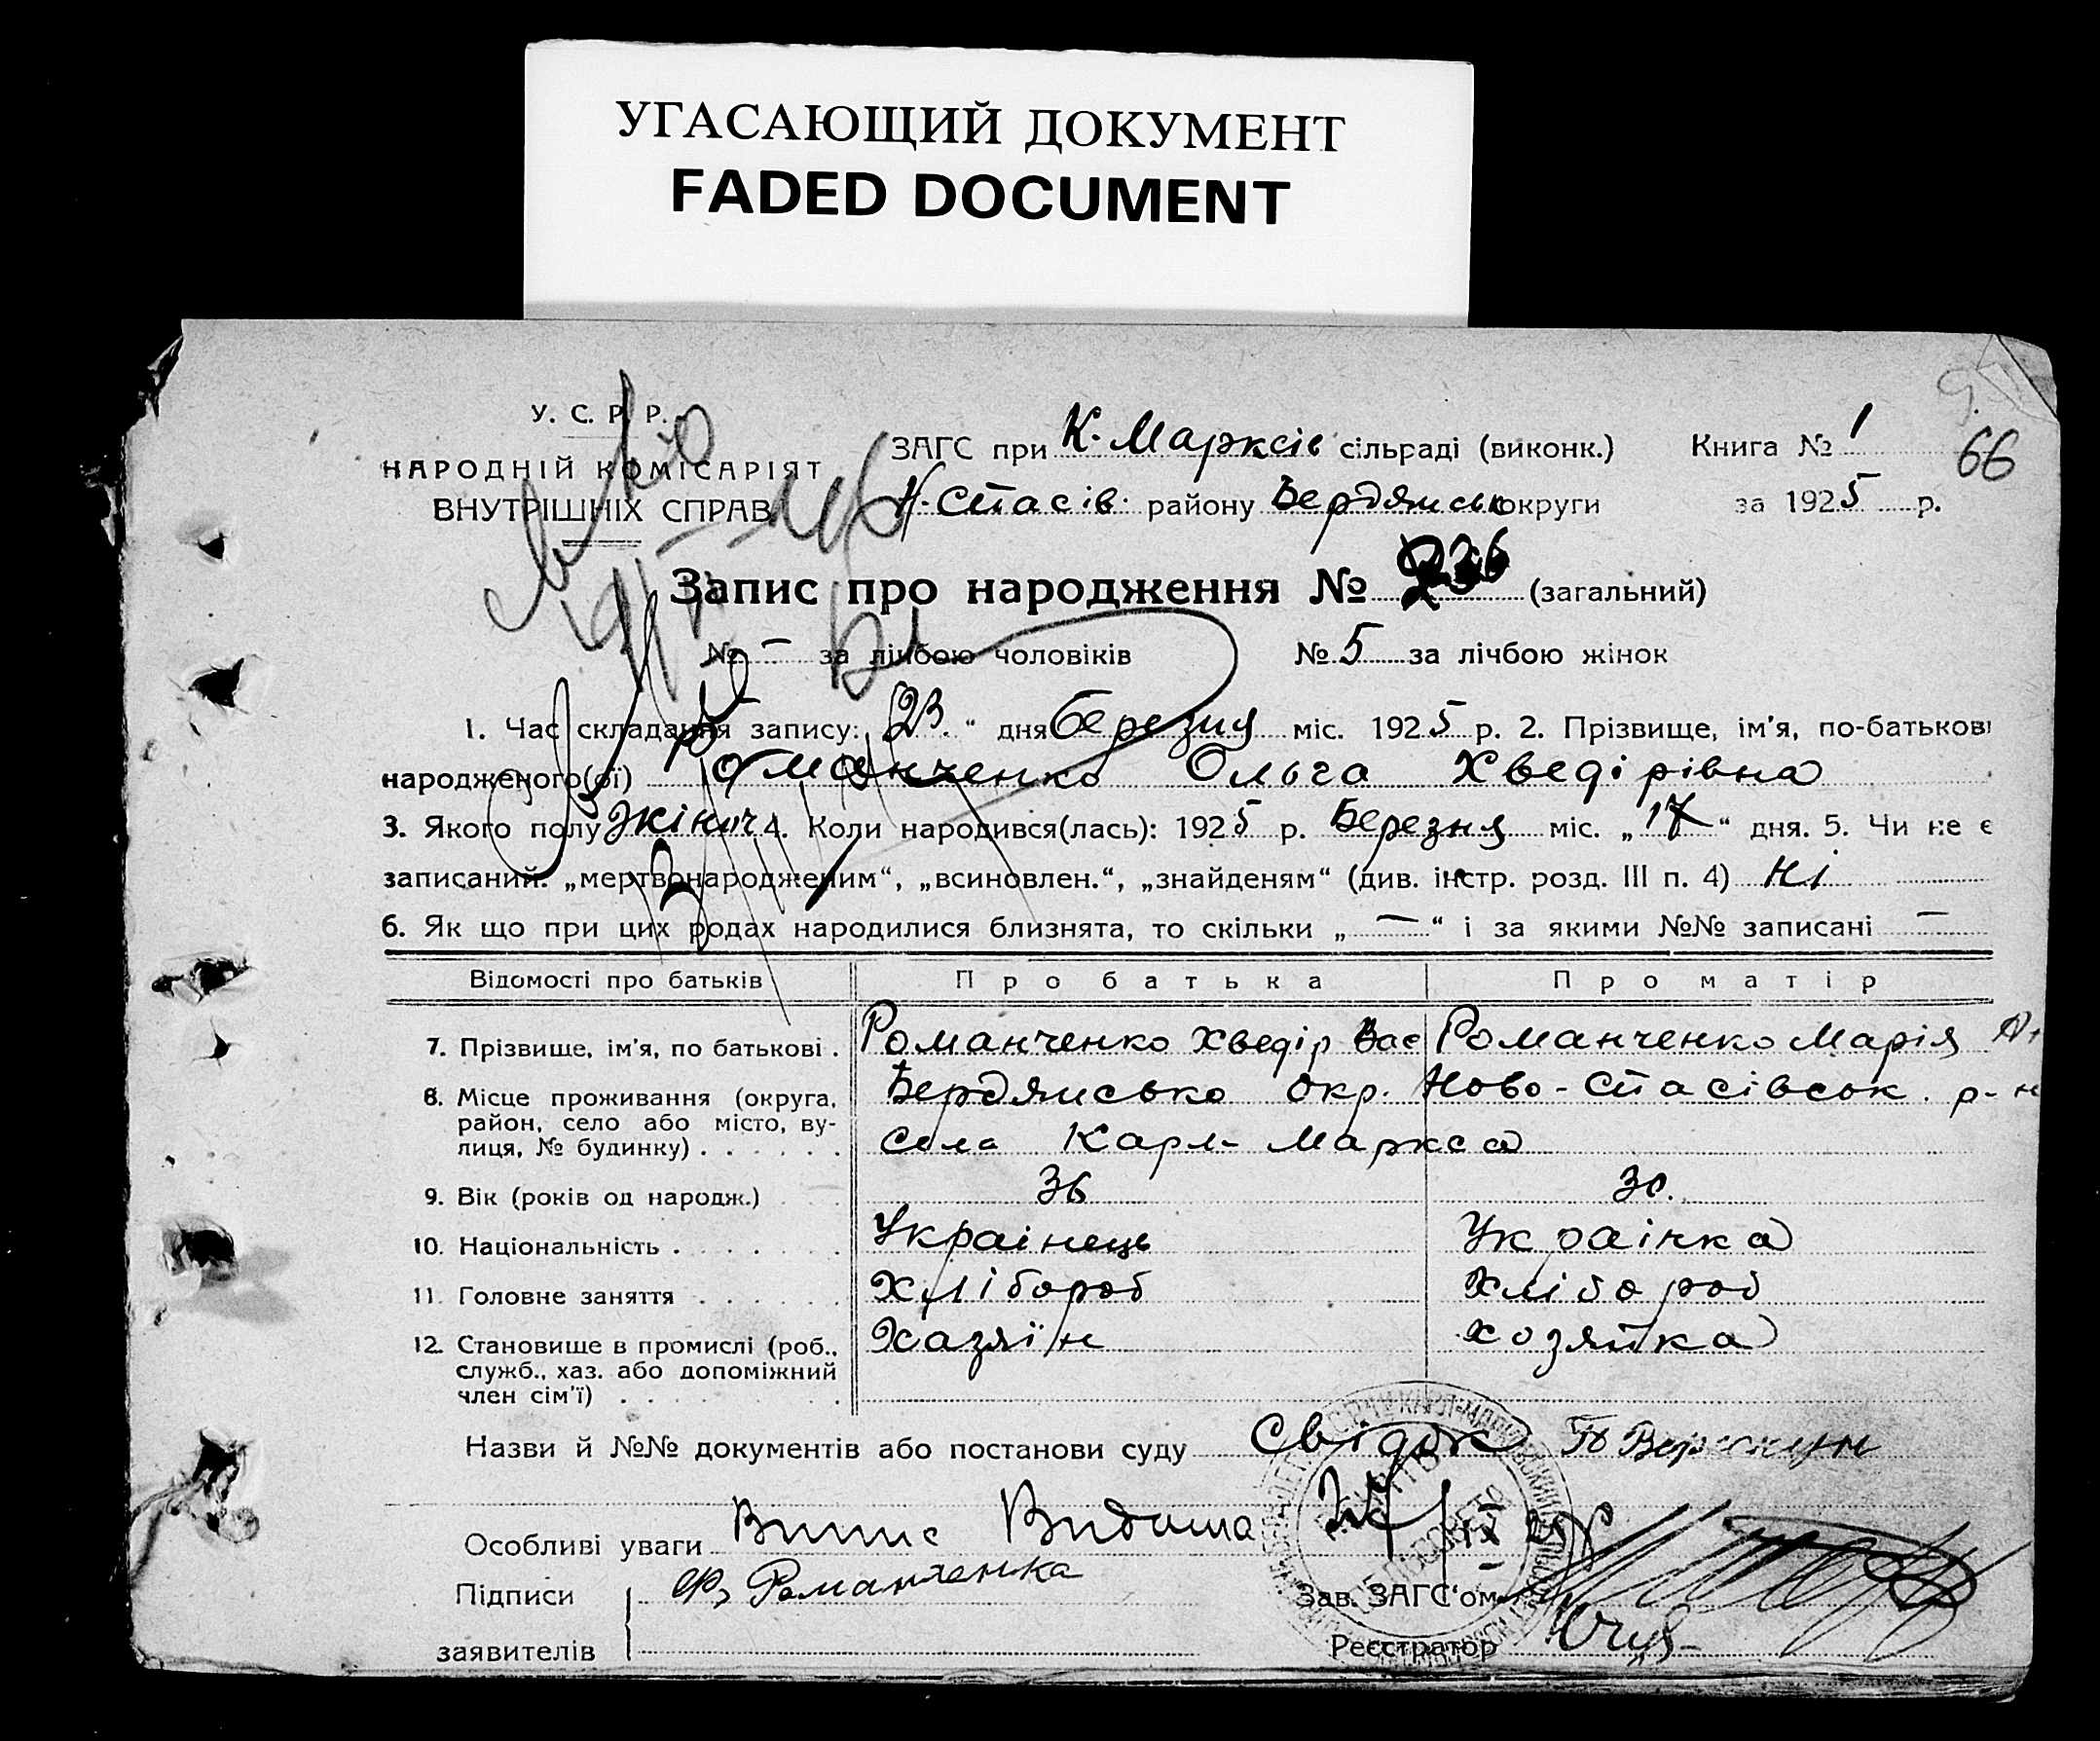 УГАСАЮЩИЙ ДОКУМЕНТ
FADED DOCUMENT
У. С. Р. Р.
НАРОДНІЙ КОМІСАРІЯТ
ВНУТРІШНІХ СПРАВ
ЗАГС при К. Марксів сільраді (виконк.)
Н-Спасів. району Бердянськ округи
Книга № 1
за 1925 р.
66
Запис про народження № 236 (загальний)
№ — за лічбою чоловіків № 5 за лічбою жінок
1. Час складання запису: 23 " дня березня міс. 1925 р. 2. Прізвище, ім'я, по-батькові
народженого(ої) Романченко Ольга Хведірівна
3. Якого полу жіноч 4. Коли народився(лась): 1925 р. Березня міс. „17" дня. 5. Чи не є
записаний: „мертвонародженим", „всиновлен.", „знайденям" (див. інстр. розд. III п. 4) Ні
6. Як що при цих родах народилися близнята, то скільки „—" і за якими №№ записані —
Відомості про батьків Про батька Про матір
7. Прізвище, ім'я, по батькові . Романченко Хведір Вас Романченко Марія
8. Місце проживання (округа, Бердянсько окр. Ново-Спасівськ. р-н
район, село або місто, ву-
лиця, № будинку) . . . . . . Села Карл-Маркса
9. Вік (років од народж.) 36 30.
10. Національність . . . . . . . Українець Українка
11. Головне заняття . . . . . . Хлібороб Хлібороб
12. Становище в промислі (роб., Хазяїн хозяйка
служб., хаз. або допоміжний
член сім'ї) . . . . . .
Назви й №№ документів або постанови суду Свідок
Особливі уваги Випис Видана
Підписи Романченка
заявителів
Зав. ЗАГС'ом
Реєстратор